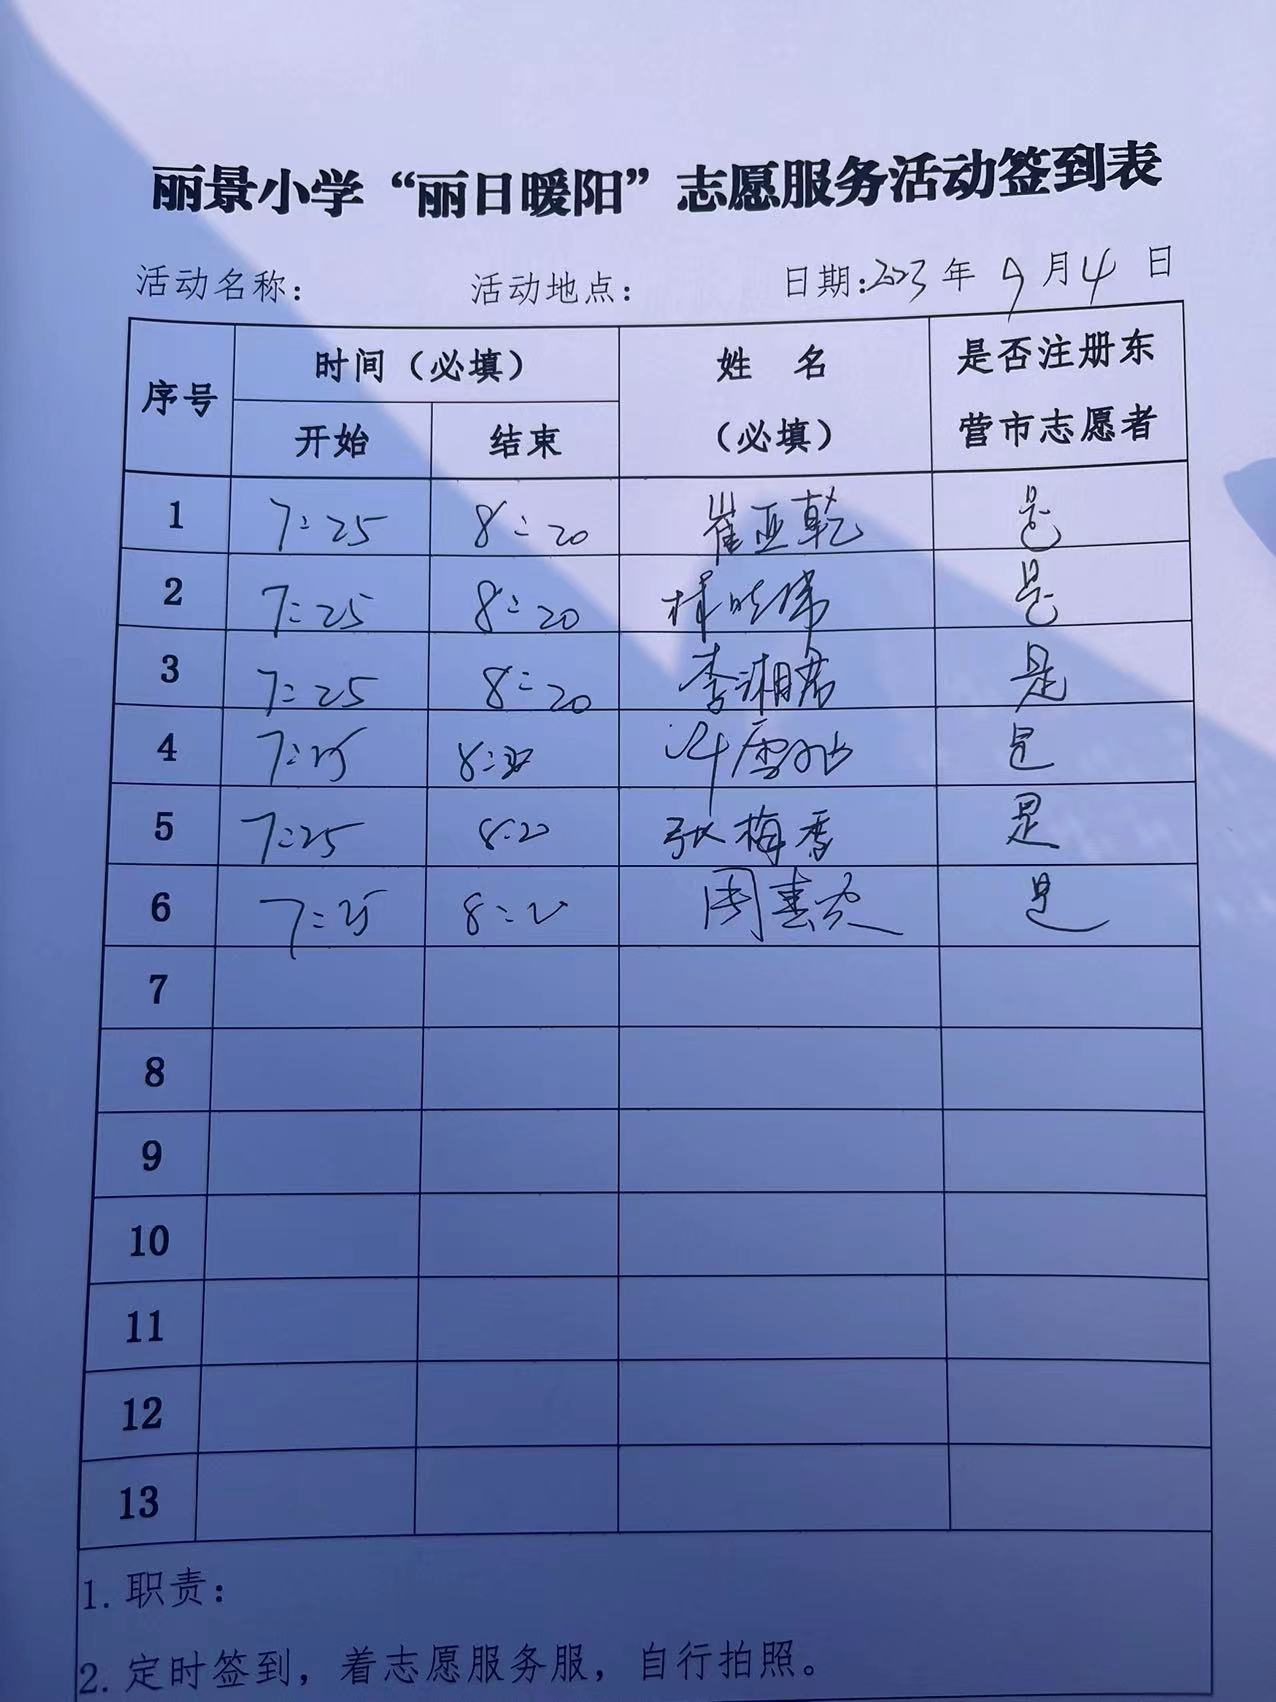 丽景小学“丽日暖阳”志愿服务活动签到表
活动名称： 活动地点： 日期:2023年 9月4 日
序号 时间（必填） 姓 名（必填） 是否注册东营市志愿者
开始 结束
1 7:25 8:20 崔亚乾 是
2 7:25 8:20 是
3 7:25 8:20 李湘君 是
4 7:25 8:20 是
5 7:25 8:20 张梅香 是
6 7:25 8:20 是
7
8
9
10
11
12
13
1. 职责：
2. 定时签到，着志愿服务服，自行拍照。